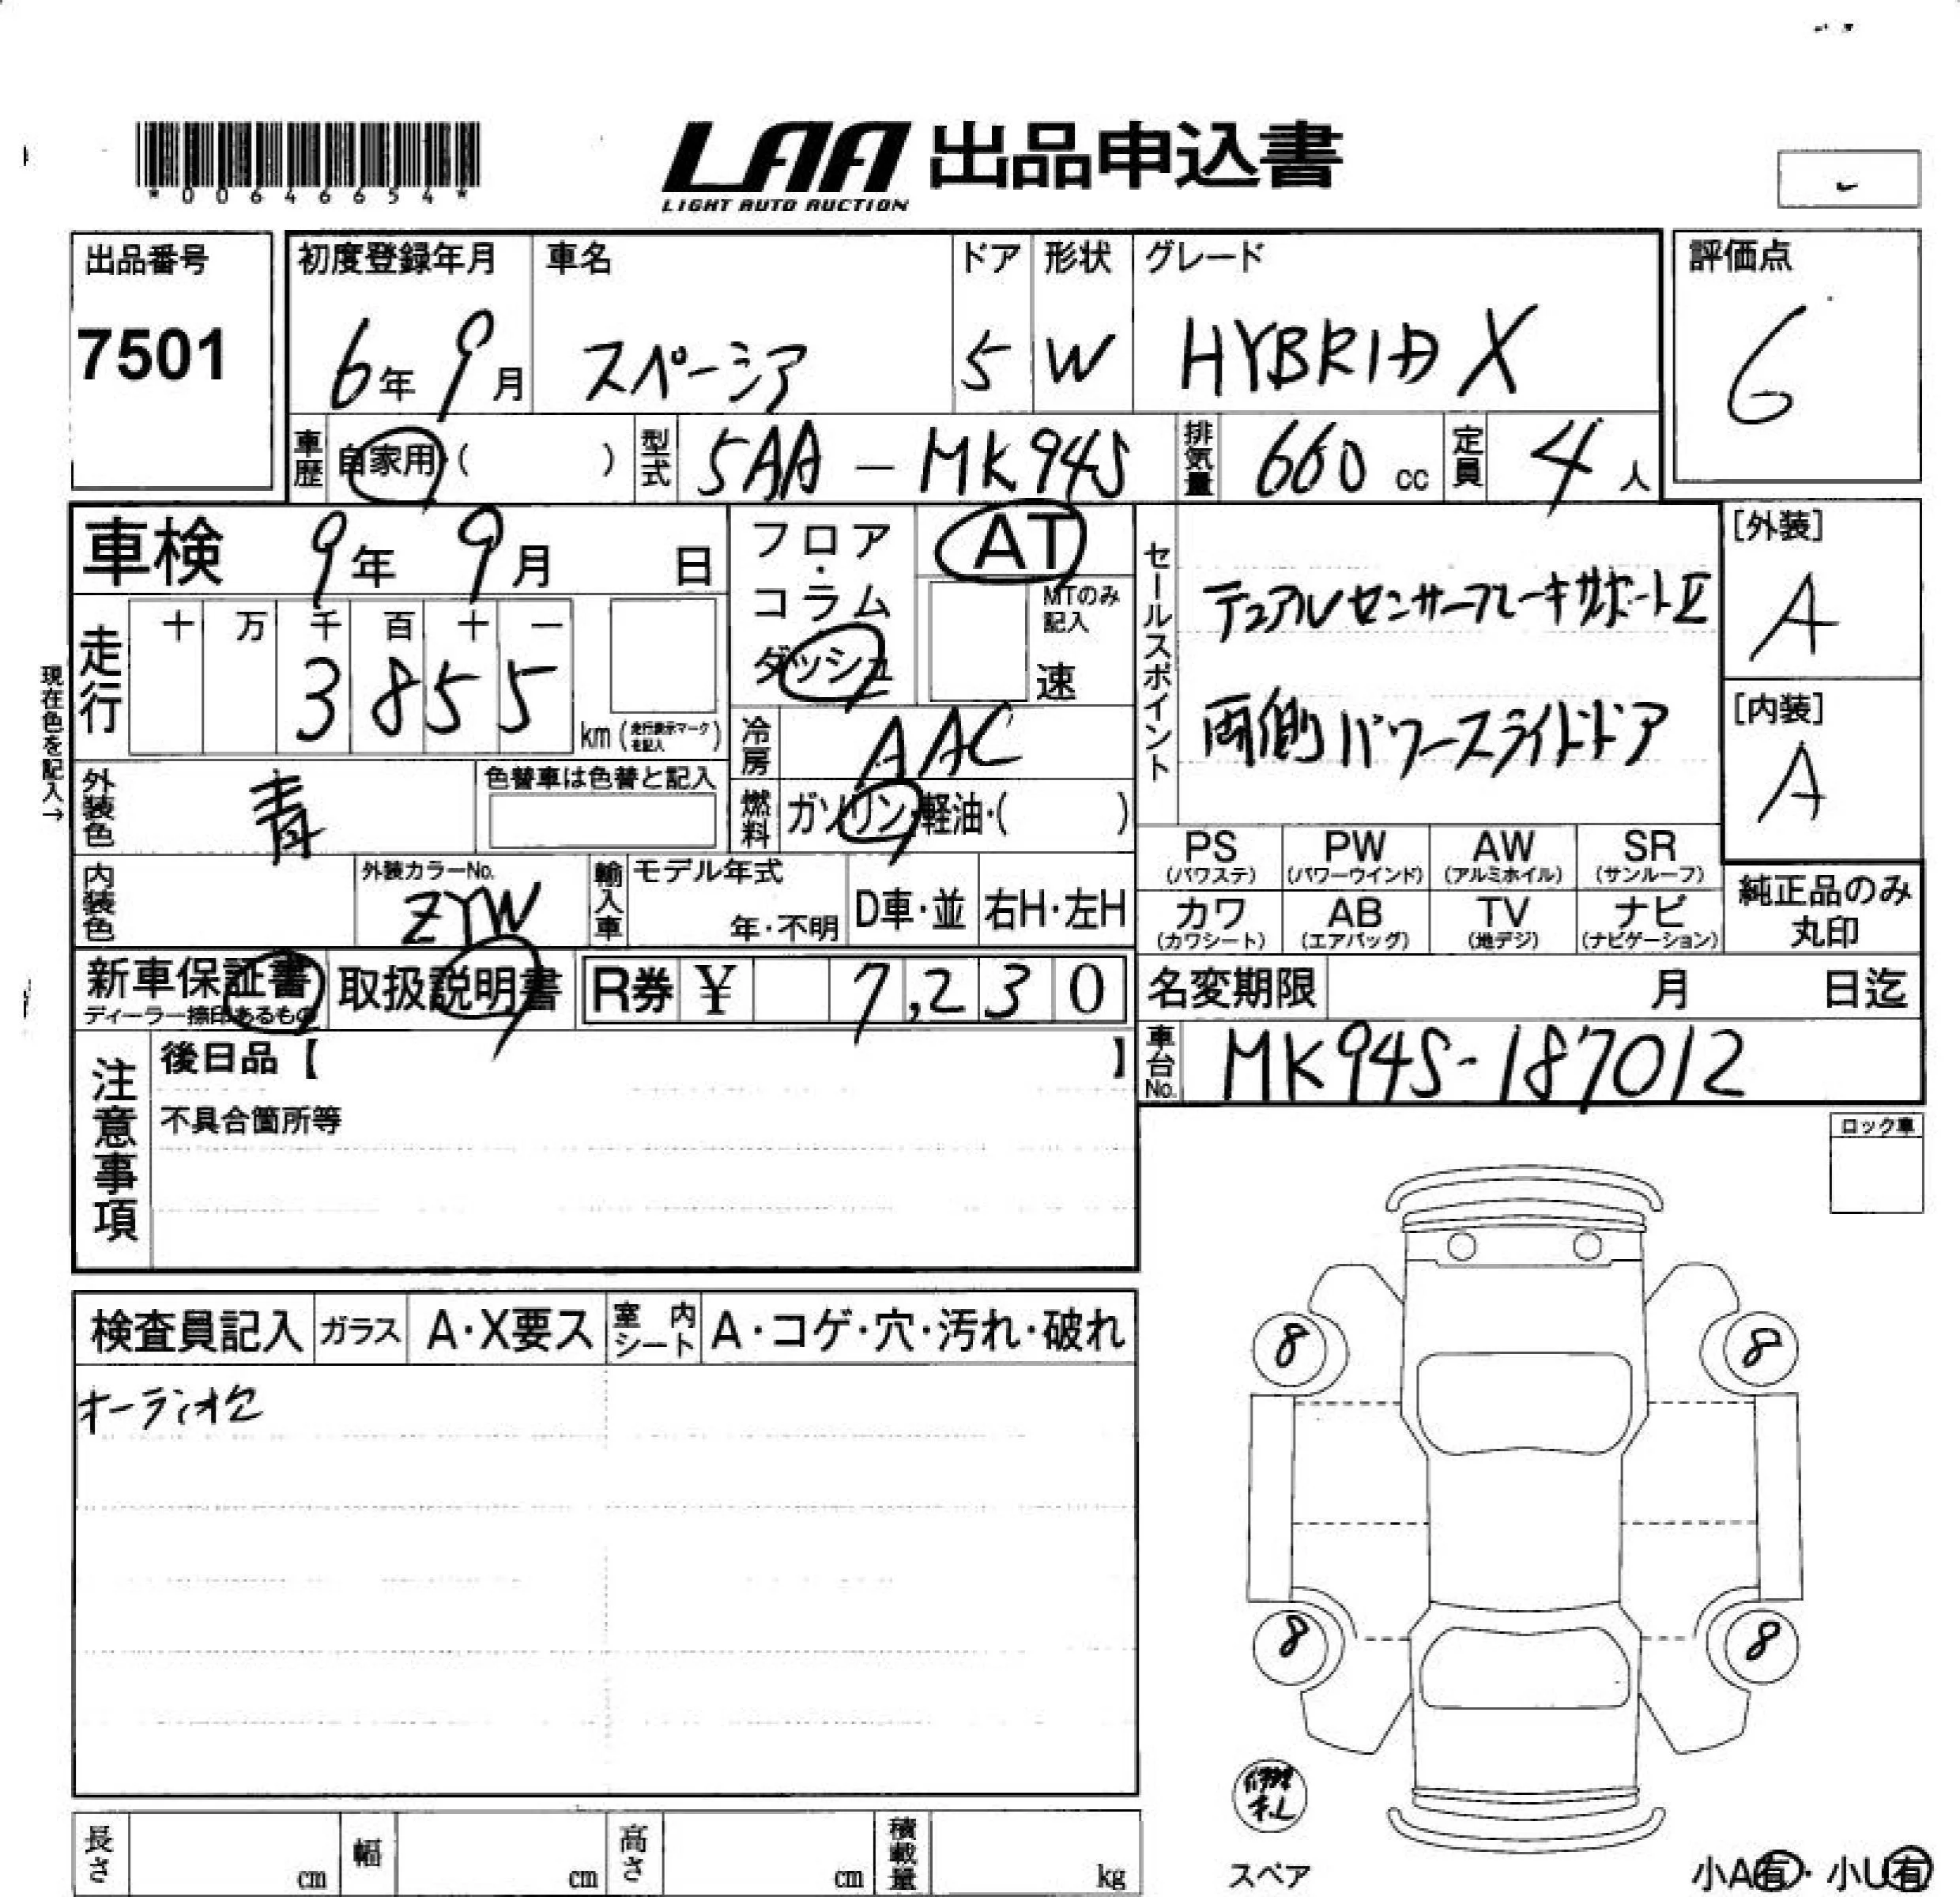 *00646654*
LAA 出品申込書
LIGHT AUTO AUCTION
出品番号
7501
初度登録年月
6年 9月
車名
スペーシア
ドア
5
形状
W
グレード
HYBRID X
評価点
6
車歴 自家用・( )
型式 5AA-MK94S
排気量 660 cc
定員 4人
車検 9年 9月 日
フロア・コラム ダッシュ
AT
MTのみ記入
速
セールスポイント
デュアルセンサーブレーキサポートⅡ
両側パワースライドドア
[外装]
A
[内装]
A
現在色を記入→
走行
十 万 千 百 十 一
3 8 5 5
km(走行表示マークを記入)
冷房 AAC
外装色 青
色替車は色替と記入
燃料 ガソリン・軽油・( )
内装色
外装カラーNo.
ZYW
輸入車
モデル年式
年・不明
D車・並
右H・左H
PS (パワステ)
PW (パワーウインド)
AW (アルミホイル)
SR (サンルーフ)
カワ (カワシート)
AB (エアバッグ)
TV (地デジ)
ナビ (ナビゲーション)
純正品のみ
丸印
新車保証書
ディーラー捺印あるもの
取扱説明書
R券 ¥ 7,230
名変期限 月 日迄
車台No. MK94S-187012
注意事項
後日品【 】
不具合箇所等
ロック車
検査員記入
ガラス
A・X要ス
室内シート
A・コゲ・穴・汚れ・破れ
8 8
8 8
スペア
長さ cm
幅 cm
高さ cm
積載量 kg
小A有・小U有